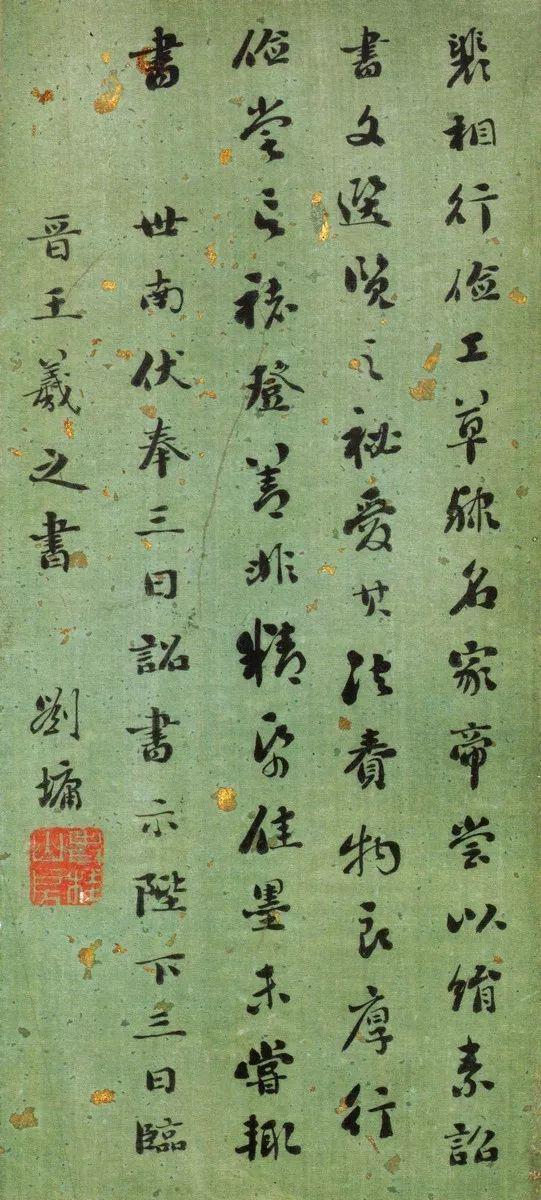 裴相行儉工草隸名家帝嘗以絹素詔
書文選覽之祕愛其法賚物良厚行
儉嘗言褚登善非精佳墨未嘗輙
書 世南伏奉三日詔書示陛下三日臨
晉王羲之書 劉墉